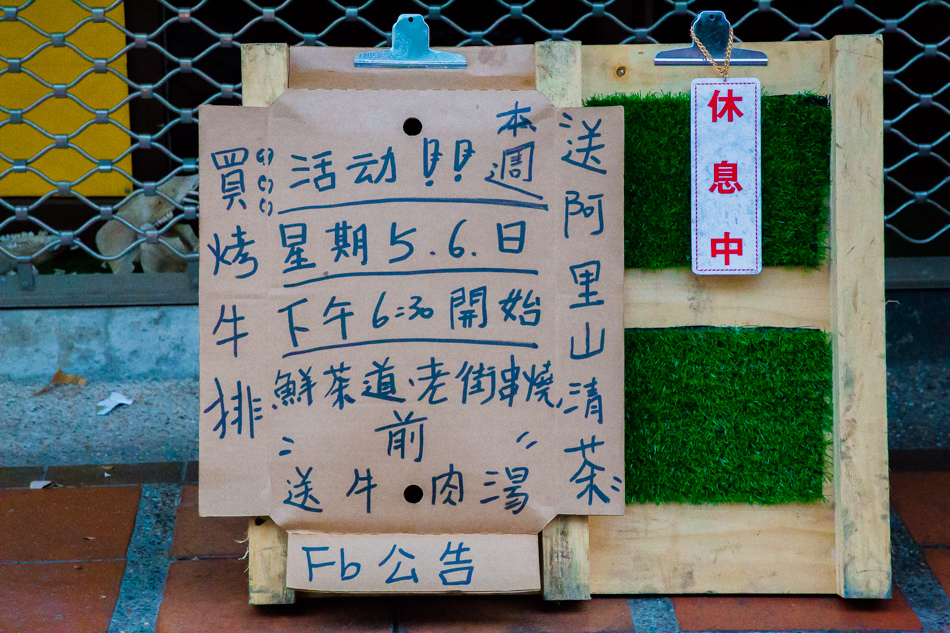 買烤牛排
本週
活动!!
星期5.6.日
下午6:30開始
鮮茶道.老街串燒
前
送牛肉湯
送阿里山清茶
Fb公告
休息中